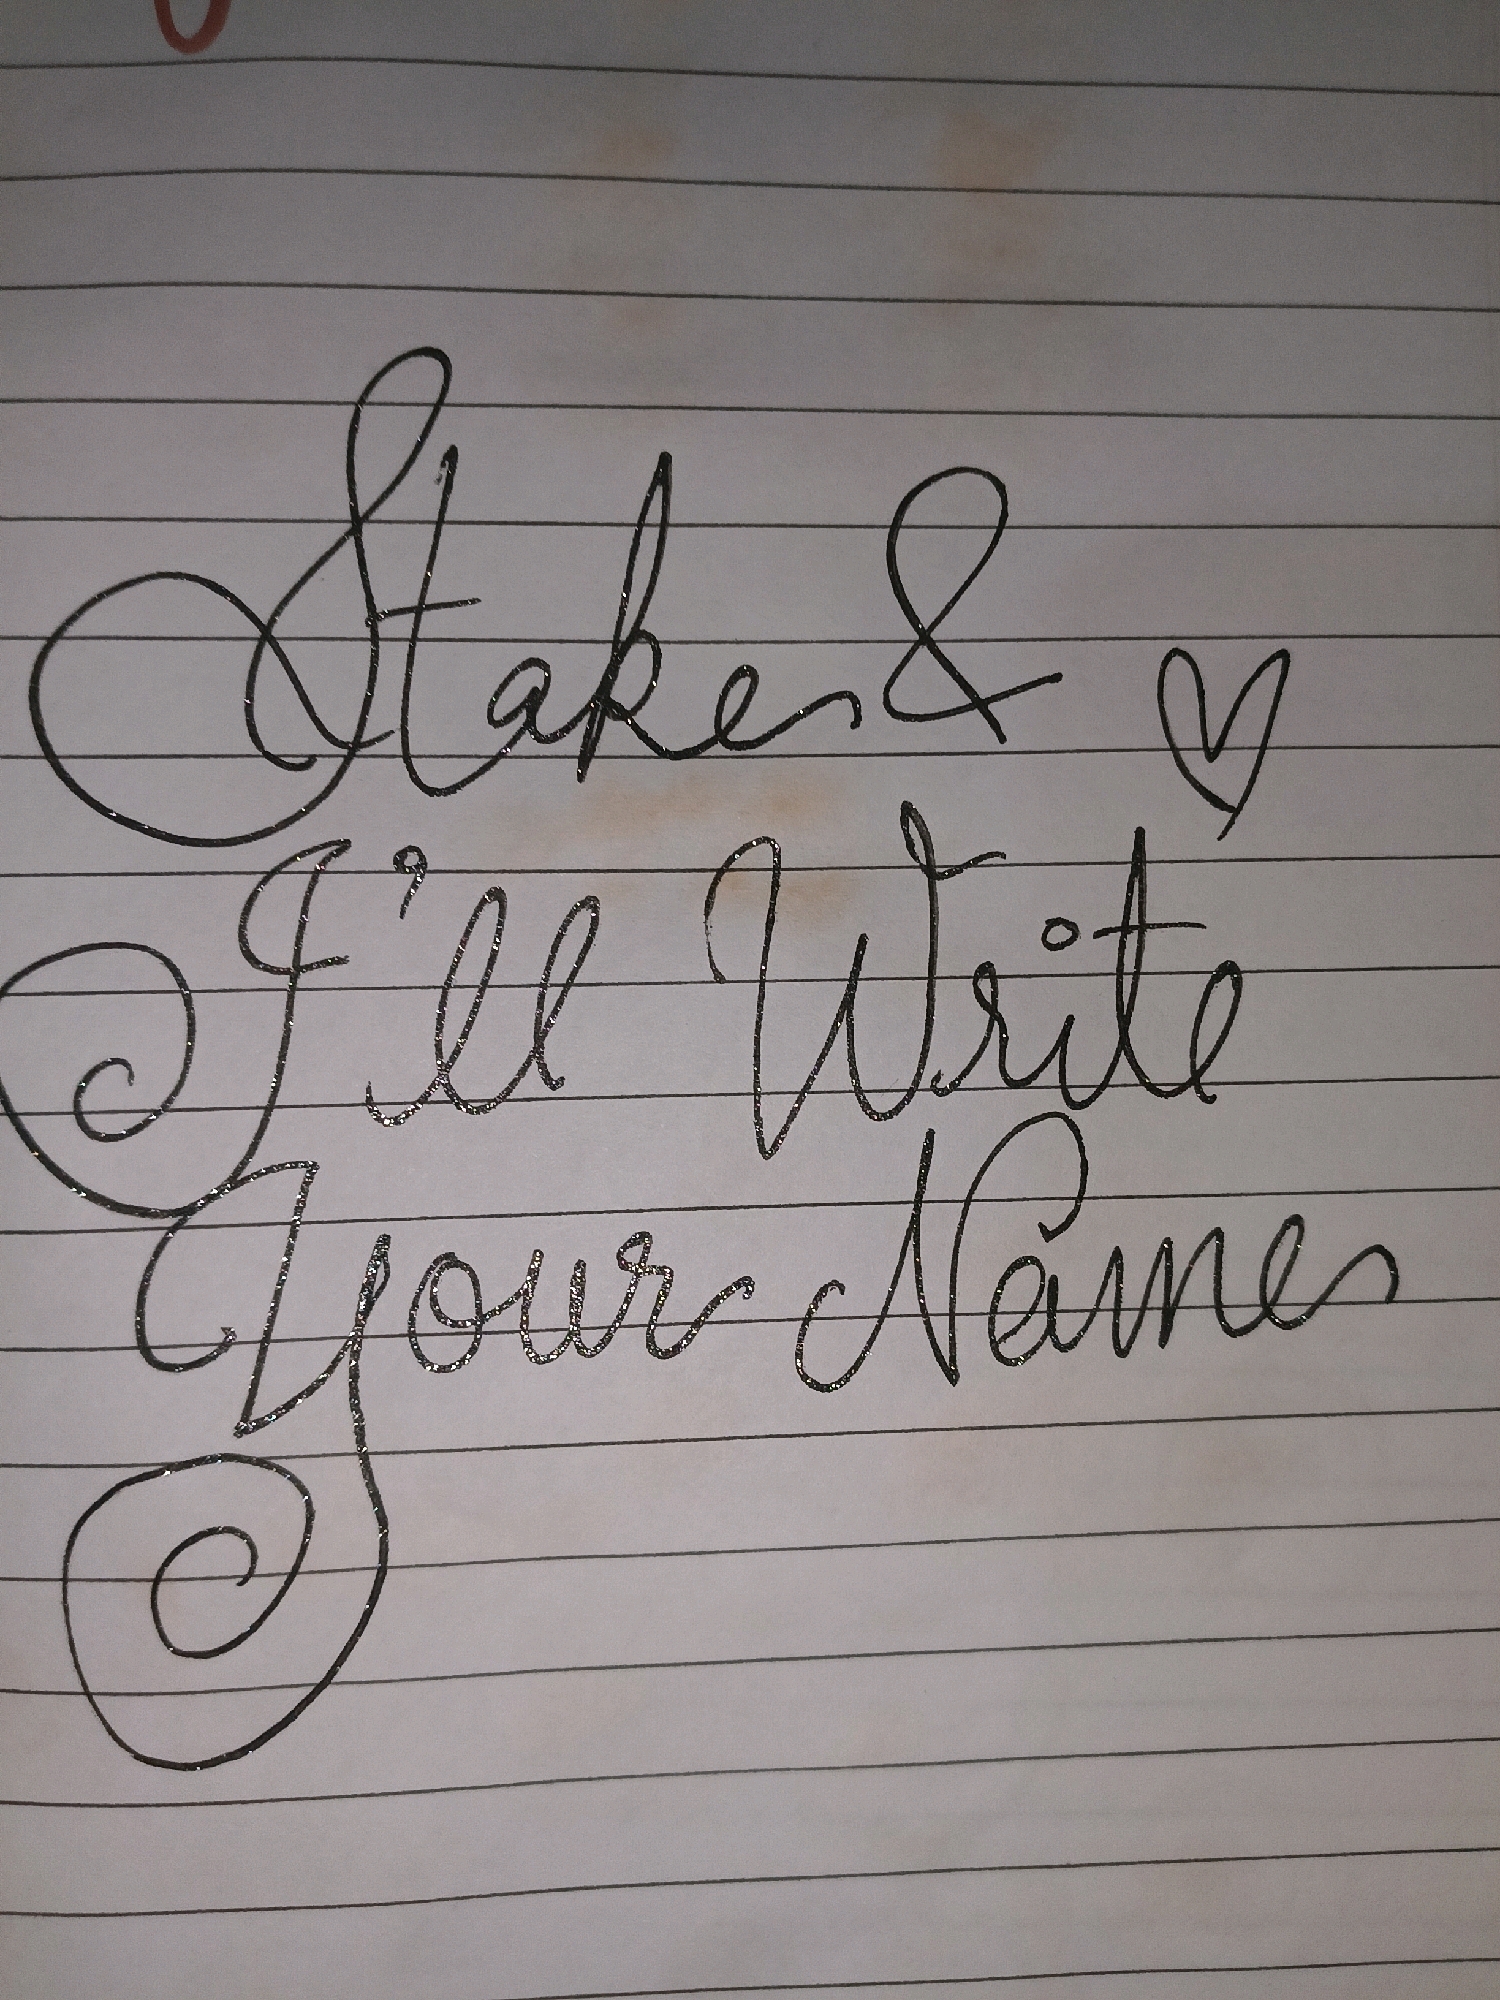 Stake & ♡
I'll Write
Your Name